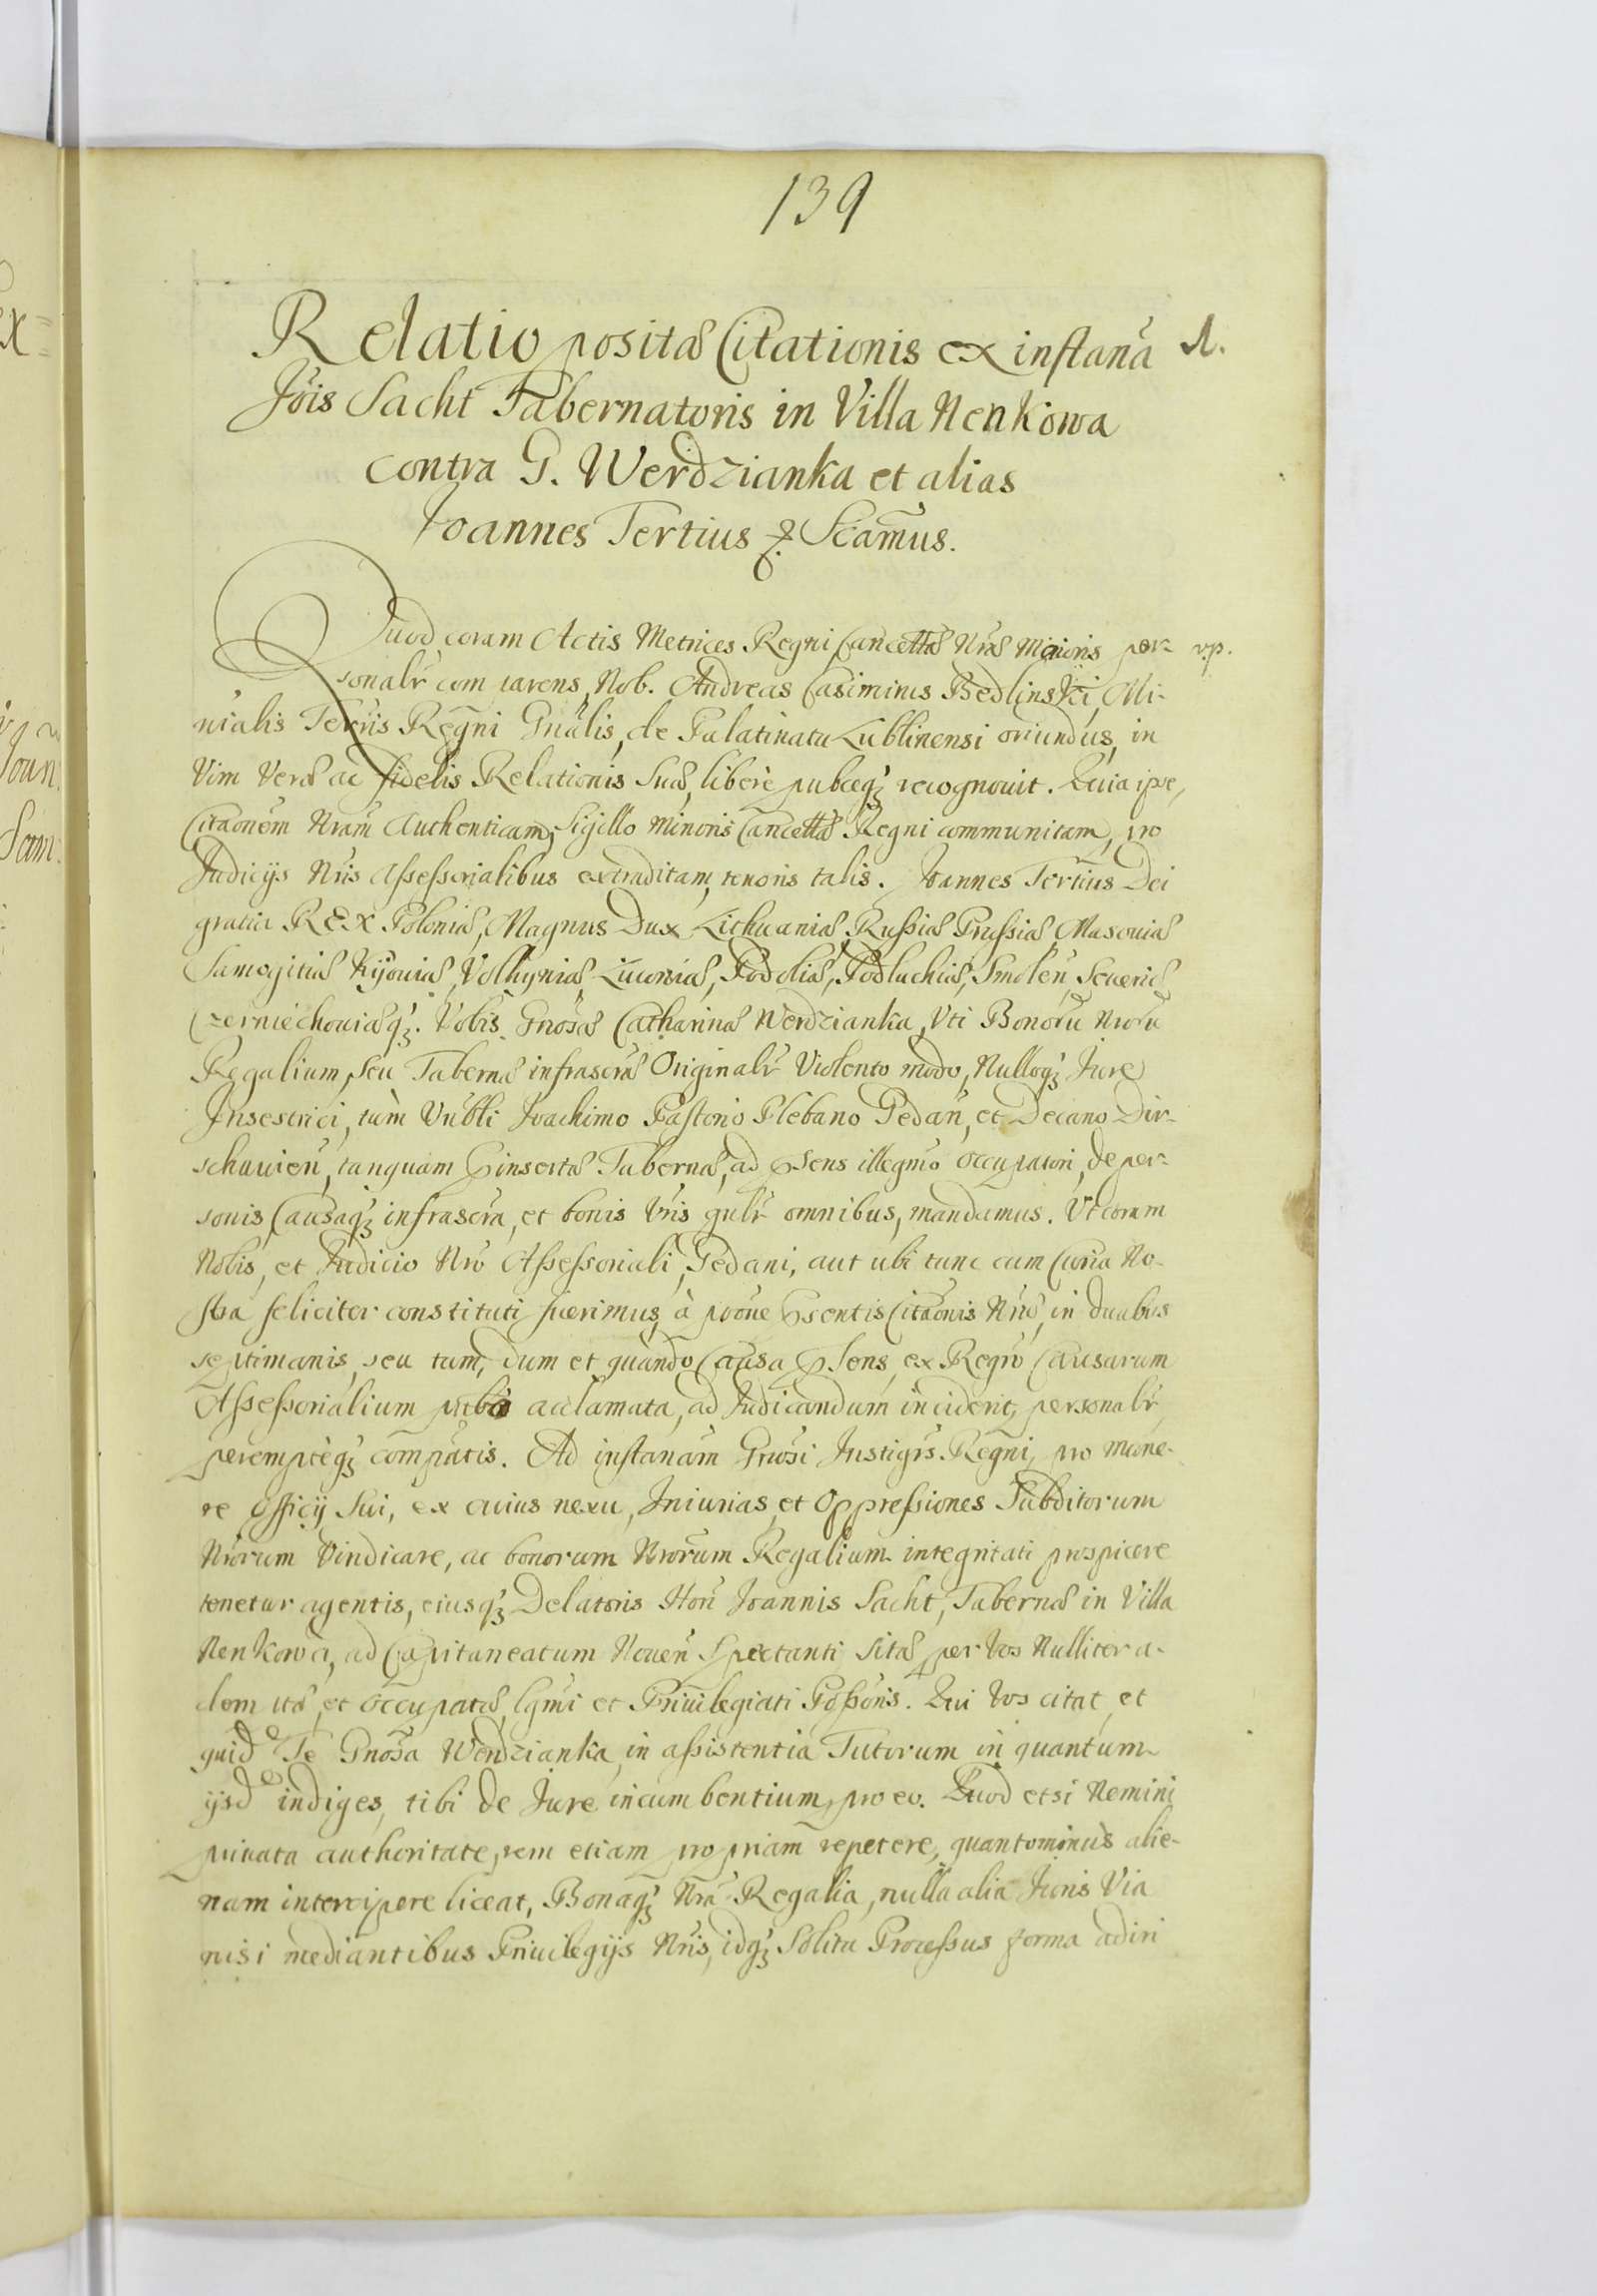 139
Relatio positæ Citationis ex instana͞ A.
Jōis Sacht Tabernatoris in Villa Nenkowa
contra G. Werdzianka et alias
Joannes Tertius & Sc̄amus.
Quod coram Actis Metrices Regni Cancellæ Nræ Minoris per- vp.
sonalr̄ comparens, Nob. Andreas Casimirus Bedlinski, Mi-
nialis Terrīs Regni Gn̄alis, de Palatinatu Lublinensi oriundus, in
Vim Veræ ac fidelis Relationis Suæ, liberè publceq; recognouit. Quia ipse,
Citaonēm Nram̄ Authenticam, Sigillo Minoris Cancellæ Regni communitam, pro
Judicijs Nr̄is Assessorialibus extraditam, tenoris talis. Joannes Tertius Dei
gratia REX Poloniæ, Magnus Dux Lithuaniæ Russiæ Prussiæ, Masouiæ
Samogitiæ Kijouiæ, Volhyniæ, Liuoniæ, Podoliæ, Podlachiæ, Smolen̄, Seueriæ
Czerniechouiæq;. Vobis Gnosæ Catharinæ Werdzianka, Vti Bonorū Nrorū
Regalium, seu Tabernæ infrascræ Originalr̄ Violento modo, Nulloq; Jure
Insestrici, tùm Vnbli Joachimo Pastorio Plebano Gedan̄, et Decano Dir-
schauien̄, tanquam insertæ Tabernæ, ad sens illegmo occupatori, de per-
sonis Causaq; infrascra, et bonis Vris gnlr̄ omnibus, mandamus. Vt coram
Nobis, et Judicio Nro Assessoriali, Gedani, aut ubi tunc cum Curia No-
stra feliciter constituti fuerimus, à pōone sentis Citaonis Nræ, in duabus
septimanis, seu tum, dum et quando Causa sens, ex Regro Causarum
Assessorialium acclamata, ad Judicandum inciderit, personalr̄
peremptèq; compatis. Ad instanām Gnosi Instigrs. Regni, pro mune-
re officij Sui, ex cuius nexu, Iniurias, et Oppressiones Subditorum
Nrorum Vindicare, ac bonorum Nrorum Regalium integritati prospicere
tenetur agentis, eiusq; Delatoris Hon̄ Joannis Sacht, Tabernæ in Villa
Nenkowa, ad Capitaneatum Nouen̄ Spectanti Sitæ per Vos Nulliter a-
dem itæ, et occupatæ, lgmi et Priuilegiati Possoris. Qui Vos citat, et
quid͞ Te Gnosa Werdzianka, in assistentia Tutorum in quantum
ijsd͞ indiges, tibi de Jure incumbentium, pro eo. Quod etsi Nemini
priuata authoritate, rem etiam propriam repetere, quantominùs alie-
nam intercipere liceat, Bonaq; Nra Regalia, nulla alia Juris Via
nisi mediantibus Priuilegijs Nris, idq; Solita Processus forma adiri